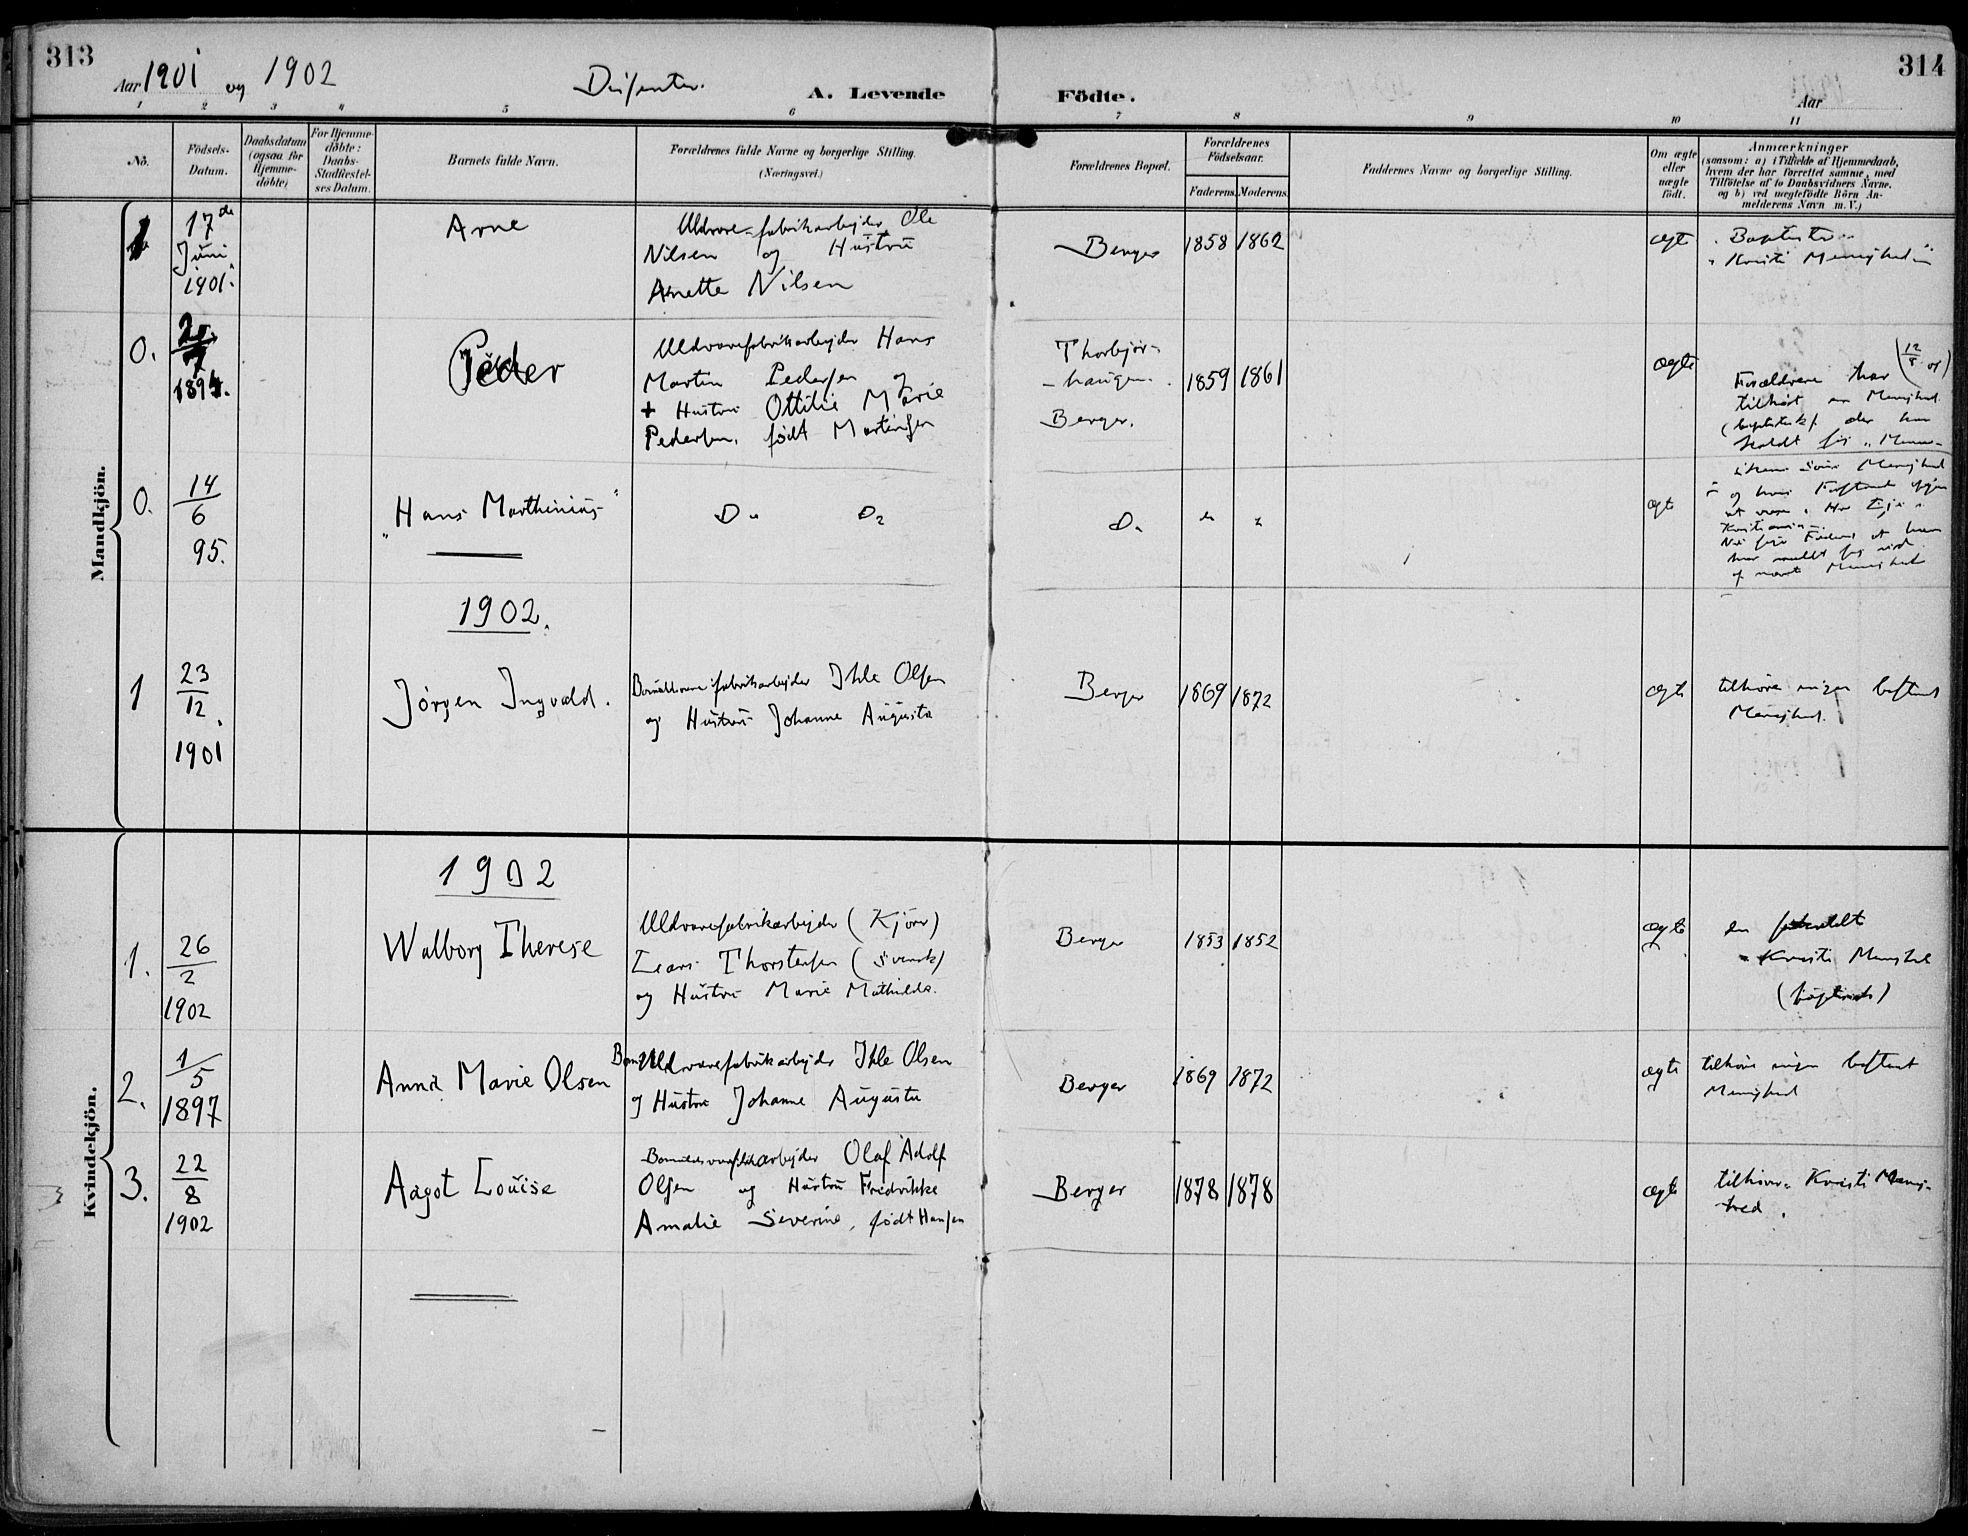 313
Aar 1901 og 1902
Disenter.
A. Levende
Födte.
Aar
314
1 2 3 4 5 6 7 8 9 10 11
No.
Födsels-
Datum.
Daabsdatum
(ogsaa for
Hjemme-
döbte)
For Hjemme-
döbte:
Daabs-
Stadfæstel-
ses Datum.
Barnets fulde Navn.
Forældrenes fulde Navne og borgerlige Stilling.
(Næringsvei.)
Forældrenes Bopæl.
Forældrenes
Födselsaar.
Faderens. Moderens.
Faddernes Navne og borgerlige Stilling.
Om ægte
eller
uægte
født.
Anmærkninger
(saasom: a) i Tilfælde af Hjemmedaab,
hvem der har forrettet samme, med
Tilföielse af to Daabsvidners Navne.
og b) ved uægtefödte Börn An-
melderens Navn m. V.)
Mandkjön.
1
17de
Juni
1901.
Arne
Uldvare-fabrikarbejder Ole
Nilsen og Hustru
Anette Nilsen
Berger
1858 1862
ægte
Baptister
Kristi Menighed
0.
1894.
Peder
Uldvarefabrikarbejder Hans
Martin Pedersen og
+ Hustru Ottilie Marie
Pedersen, født Martinsen
Thorbjør-
-haugen.
Berger.
1859 1861
ægte
Forældrene har
tilhørt en Menighed
der kun
kaldt sig
Menighed
og hvis
at være
Kristiania
Faderen at han
har meldt sig ud
af nævnte Menighed
0.
14
6
95.
"Hans Marthinius"
Do Do
Do
ægte
1902.
1
23
12.
1901
Jørgen Ingvald.
Bomuldsvarefabrikarbejder Ihle Olsen
og Hustru Johanne Augusta
Berger
1869 1872
ægte
tilhører ingen bestemt
Menighed.
Kvindekjön.
1902
1.
26
2
1902
Walborg Therese
Uldvarefabrikarbejder (Kjörer)
Lears Thorstensen (svensk)
og Hustru Marie Mathilde.
Berger
1853 1852
ægte
en
Kristi Menighed
2.
1
5
1897
Anna Marie Olsen
Uldvarefabrikarbejder Ihle Olsen
og Hustru Johanne Augusta
Berger
1869 1872
ægte
tilhører ingen bestemt
Menighed
3.
22
8
1902
Aagot Louise
Bomuldsvarefabrikarbejder Olaf Adolf
Olsen og Hustru Fredrikke
Amalie Severine, født Hansen
Berger
1878 1878
ægte
tilhører Kristi Menig-
hed.